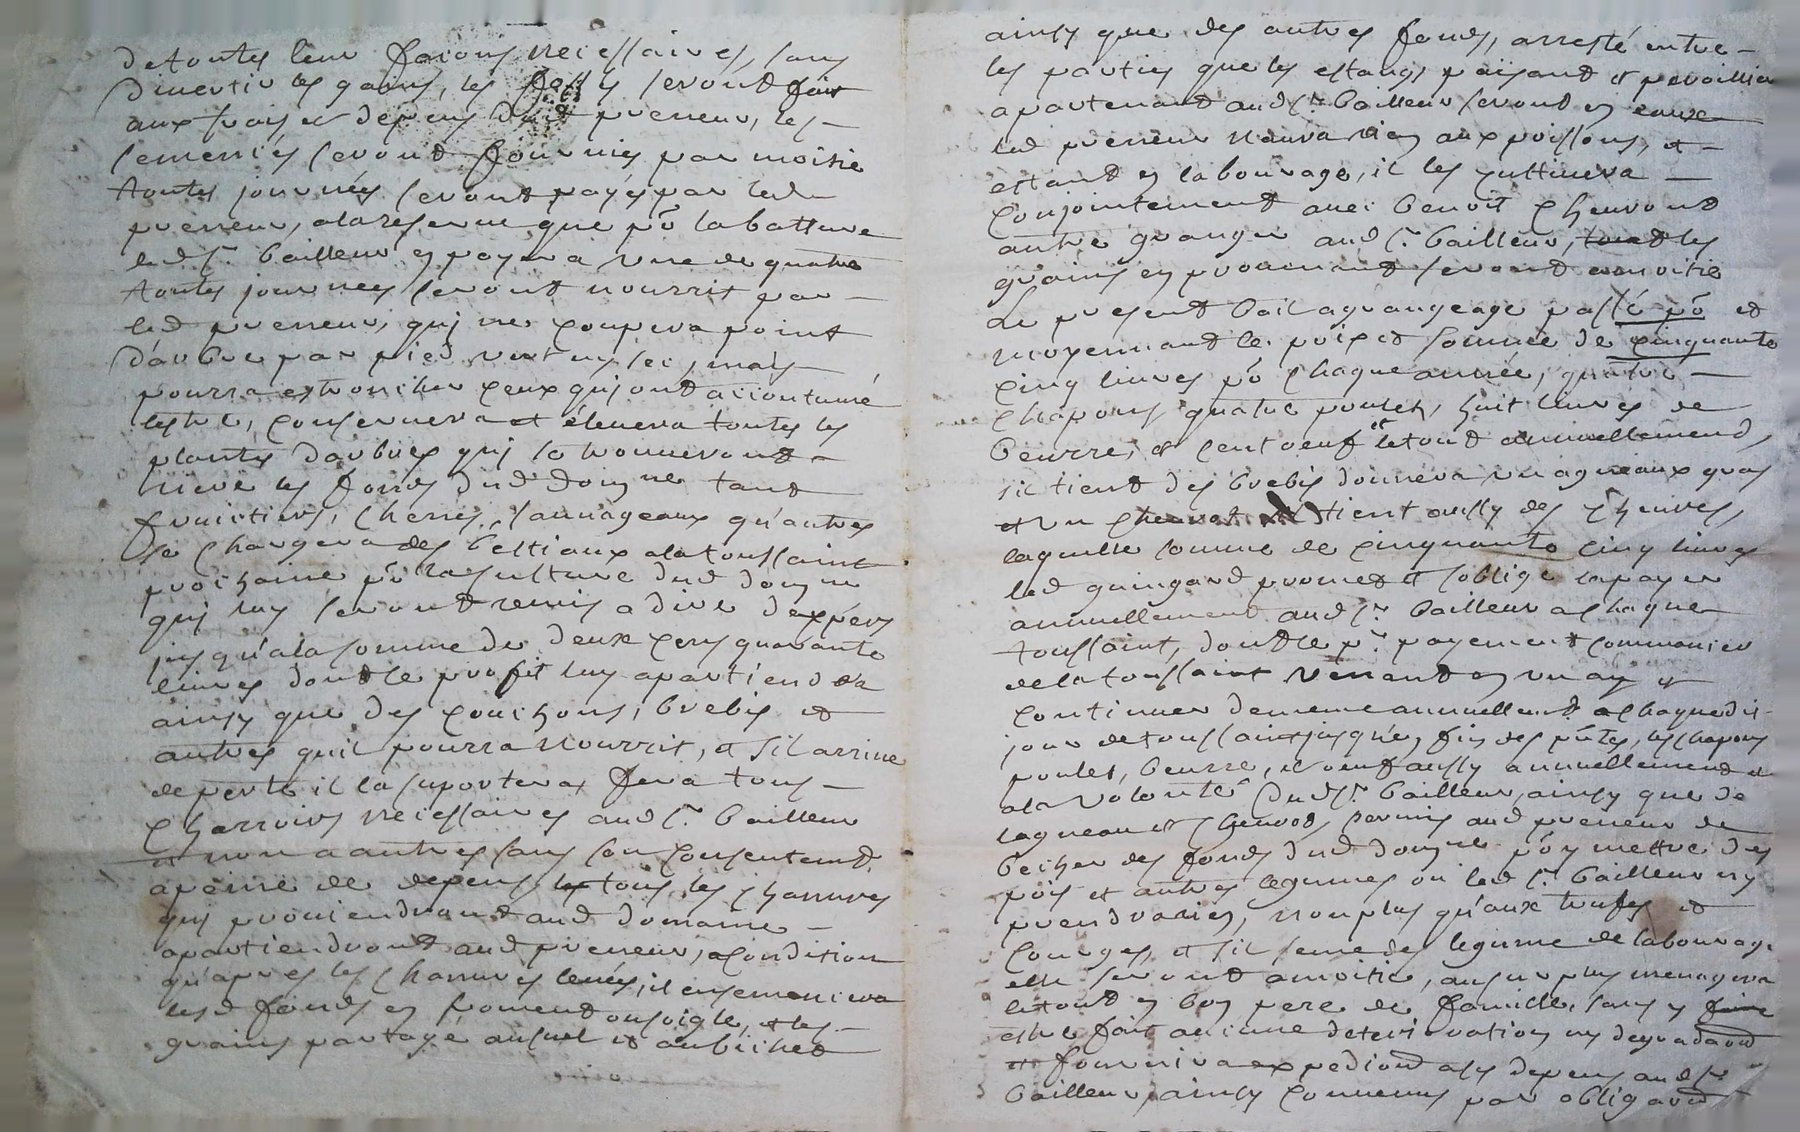 de toutes leur facons necessaires, sans
divertir les gains, les seront fait
aux frais et depens dud preneur, les
semences seront fournies par moitie
toutes journées seront payés par led
preneur, a la reserve que po la batture
led Sr. bailleur en payera une de quatre
toutes journees seront nourrit par
led preneur, qui ne coupera point
d'arbre par pied vert ny sec, mais
pourra estroncher ceux qui sont accoutumé
lestre, conservera et élevera toutes les
plantes d'arbres qui se trouveront
rieve les fonds dud domne tant
fruictiers, chenes, sauvageaux qu'autres
se chargera des bestiaux a la toussaint
prochaine po la culture dud domne
qui luy seront remis a dire dexpers
jusqu'a la somme de deux cens quarante
livres dont le profit luy apartiendra
ainsy que des couchons, brebis et
autres qu'il pourra nourrir, et s'il arrive
de perte il la suportera, fera tous
charrois necessaires aud Sr. bailleur
et non a autres sans son consentemt.
a peine de depens, tous les chanvres
qui proviendront aud domaine
apartiendront aud preneur, a condition
qu'apres les chanvres levés, il ensemencera
lesd fonds en froment ou seigle, et les
grains partagé au suel et au bichet
ainsy que des autres fonds, arresté entre
les parties que les estangs paisant et
apartenant aud Sr. bailleur seront en eaux
led preneur n'aura rien aux poissons, et
estant en labourage, il les cultivera
conjointement avec benoit chevront
autre granger aud Sr. bailleur, les
grains en provenant seront a moitie
Le present bail a grangeage passé po et
moyennant le prix et somme de cinquante
cinq livres po chaque année, quatre
chapons, quatre poulets, huit livres de
beurre, et cent oeuf et le tout annuellement,
s'il tient des brebis donnera un agneaux gras
et un chevrot s'il tient aussy des chevres,
laquelle somme de cinquante cinq livres
led guingard promet et s'oblige la payer
annuellement aud Sr. bailleur a chaque
toussaint, dont le pr. payement commencer
de la toussaint venant en un an et
continuer de meme annuellemt. a chaque dit
jour de toussaint jusqu'en fin des pntes, les chapons
poulet, beurre, et oeuf aussy annuellement et
a la volonté dud Sr. bailleur, ainsy que de
lagneau et chevrot, permis aud preneur de
becher des fonds dud domne po y mettre des
pois et autres legumes ou led Sr. bailleur ny
prendra rien, non plus qu'aux trufes et
courges, et s'il seme des legume de labourage
elle seront a moitie, au surplus menagera
le tout en bon pere de famille, sans y faire
estre fait aucune deterioration ny degradaon
et fournira expedion a ses depens aud Sr
bailleur, ainsy convenus par obligaon